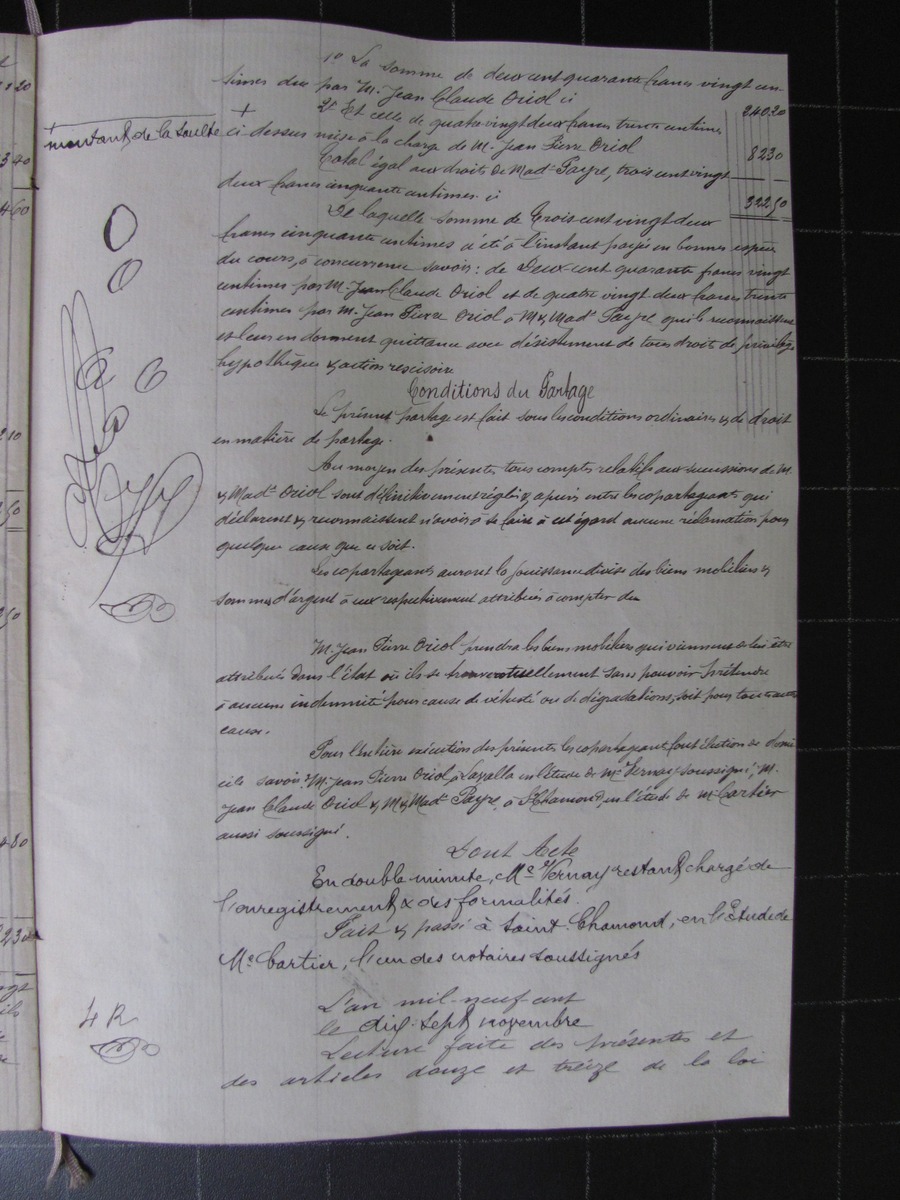 1º La somme de deux cent quarante francs vingt cen-
times due par M. Jean Claude Oriol ci 240.20
2º Et celle de quatre vingt deux francs trente centimes
+
montant de la soulte
+
ci-dessus mise à la charge de M. Jean Pierre Oriol 82 30
Total égal aux droits de Made Payre, trois cent vingt
deux francs cinquante centimes. ci 322 50
De laquelle somme de Trois cent vingt deux
francs cinquante centimes a été à l'instant payé en bonnes espèces
du cours, à concurrence savoir: de Deux cent quarante francs vingt
centimes par M. Jean Claude Oriol et de quatre vingt deux francs trente
centimes par M. Jean Pierre Oriol à M & Made Payre qui le reconnaissent
et leur en donnent quittance avec désistement de tous droits de privilège
hypothèque & action résolutoire
Conditions du Partage
Le présent partage est fait sous les conditions ordinaires & de droit
en matière de partage.
Au moyen des présentes tous comptes relatifs aux successions de M.
& Made Oriol sont définitivement réglés & apurés entre les copartageants qui
déclarent & reconnaissent n'avoir à se faire à cet égard aucune réclamation pour
quelque cause que ce soit.
Les copartageants auront la jouissance divise des biens mobiliers &
sommes d'argent à eux respectivement attribués à compter du
M. Jean Pierre Oriol prendra les biens mobiliers qui viennent de lui être
attribués dans l'état où ils se trouvent actuellement sans pouvoir prétendre
à aucune indemnité pour cause de vétusté ou de dégradations, soit pour toute autre
cause.
Pour l'entière exécution des présentes les copartageants font élection de domi
cile savoir: M. Jean Pierre Oriol à Lavalla en l'étude de Me Vernay soussigné; M.
Jean Claude Oriol & M & Made Payre, à St Chamond, en l'étude de Me Cartier
aussi soussigné.
Dont Acte
En double minute, Me Vernay restant chargé de
l'enregistrement & des formalités.
Fait & passé à Saint-Chamond, en l'Etude de
Me Cartier, l'un des notaires soussignés
L'an mil-neuf cent
le dix-sept novembre
Lecture faite des présentes et
des articles douze et treize de la loi
4 R